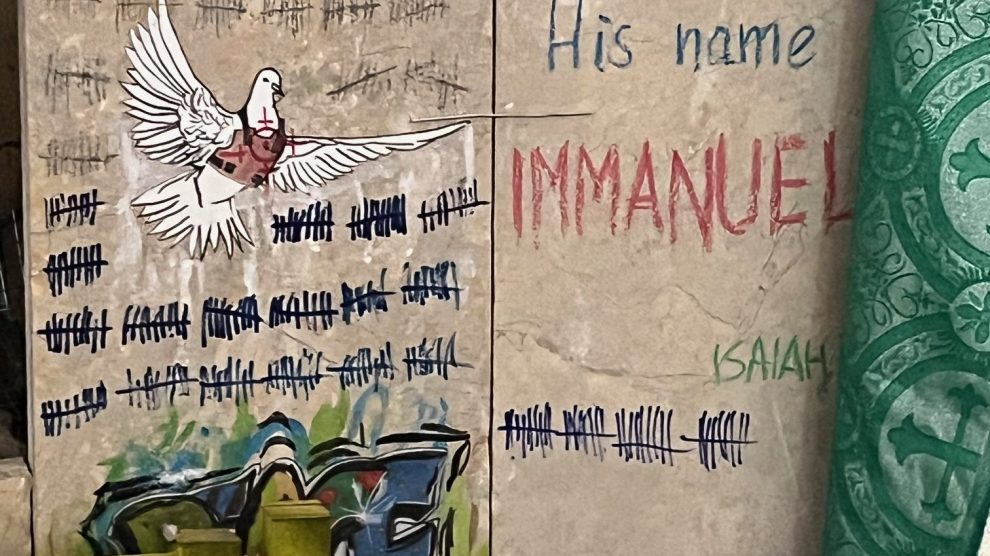 His name
IMMANUEL
ISAIAH